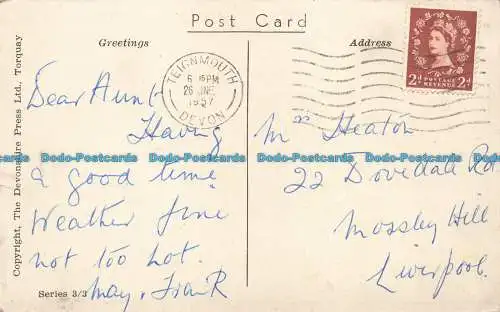 Post Card
Greetings
Address
TEIGNMOUTH
6 15 PM
26 JNE
1957
DEVON
2D POSTAGE REVENUE 2D
Dear Aunt
Having
a good time
Weather fine
not too hot.
May, Fran R
Mrs Heaton
22 Dovedale Rd
Mossley Hill
Liverpool.
Series 3/3
Copyright, The Devonshire Press Ltd., Torquay
Dodo-Postcards Dodo-Postcards Dodo-Postcards Dodo-Postcards
Dodo-Postcards Dodo-Postcards Dodo-Postcards Dodo-Postcards